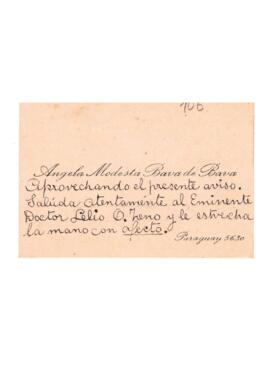 106
Angela Modesta Bava de Bava
Aprovechando el presente aviso.
Salúda atentamente al Eminente
Doctor Lelio O. Zeno y le estrecha
la mano con afecto.
Paraguay 5630